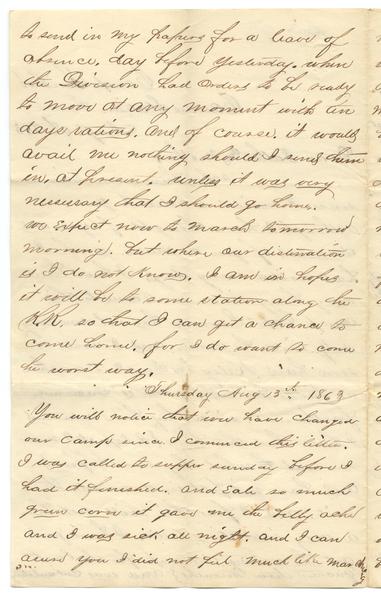 to send in my papers for a leave of
absence, day before yesterday. when
the Division had orders to be ready
to move at any moment with ten
days rations. and of course. it would
avail me nothing should I send them
in, at present, unless it was very
nessesary that I should go home.
We expect now to march tomorrow
morning. but where our distenation
is I do not know. I am in hopes
it will be to some station along the
R.R. so that I can get a chance to
come home. for I do want to come
the worst way.
Thursday Aug 13th 1863
You will notice that we have changed
our camp since I commenced this letter.
I was called to supper sunday before I
had it finished. and eat so much
green corn it gave me the belly ache
and I was sick all night. and I can
asure you I did not feel much like